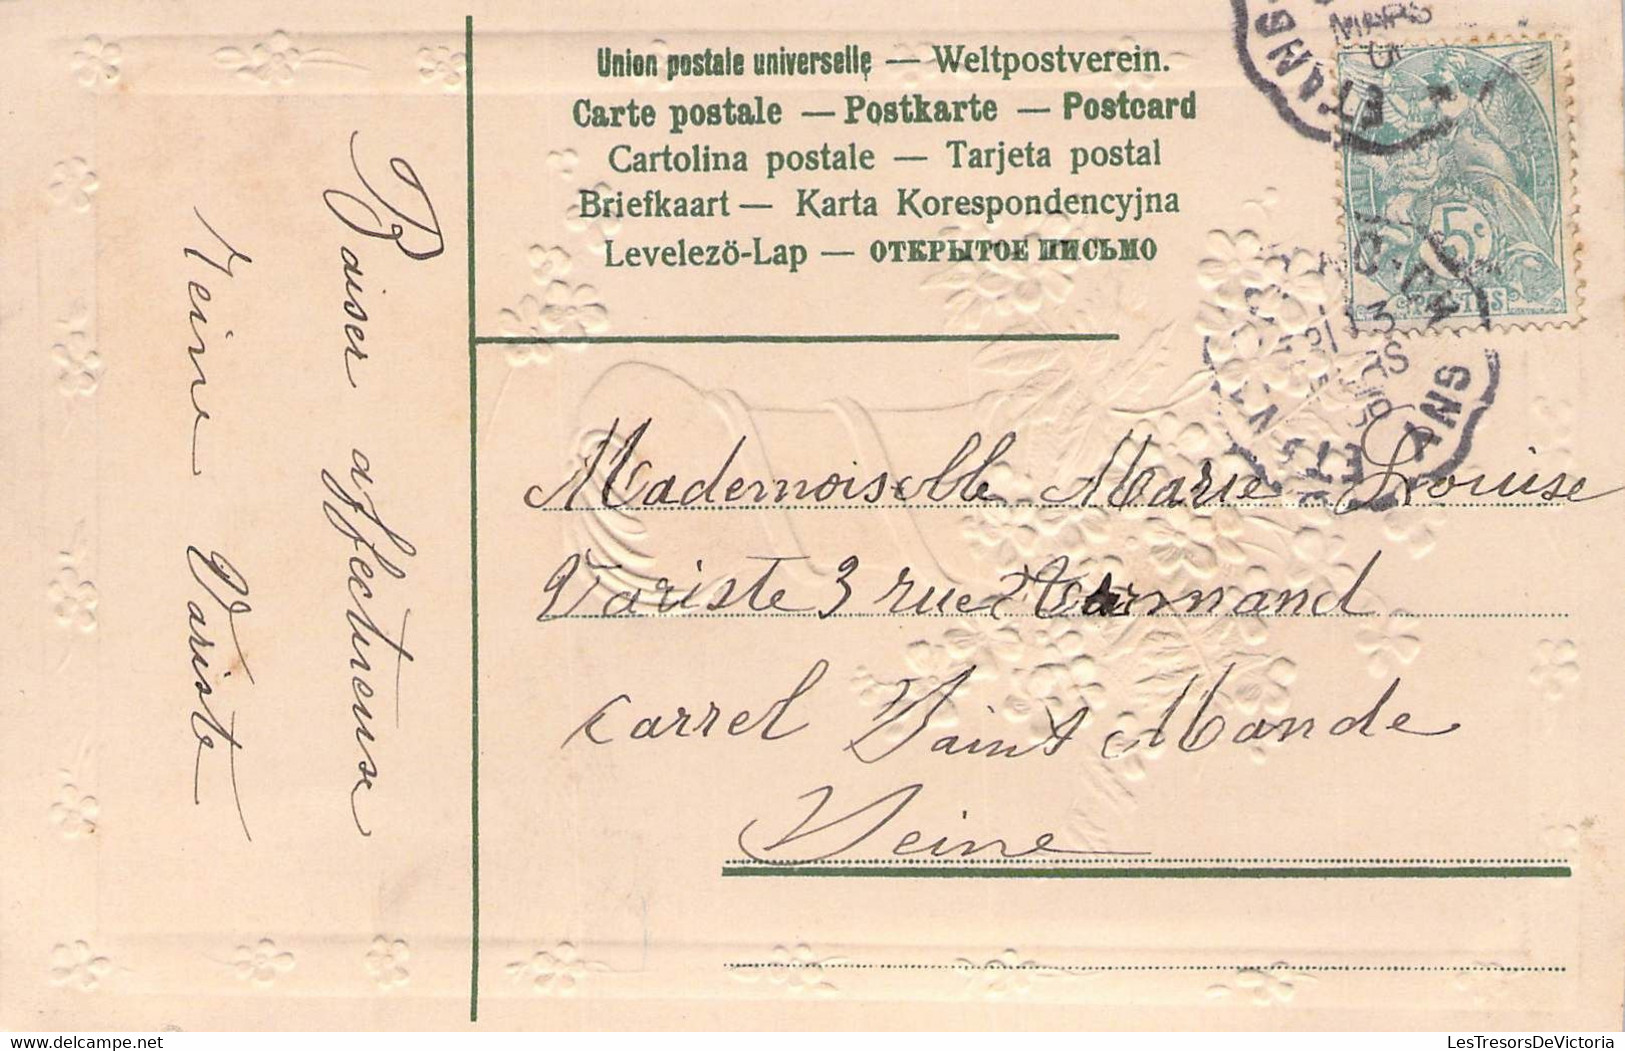 Union postale universelle — Weltpostverein.
Carte postale — Postkarte — Postcard
Cartolina postale — Tarjeta postal
Briefkaart — Karta Korespondencyjna
Levelező-Lap — ОТКРЫТОЕ ПИСЬМО
Baiser affectueux
Reine Variste
MARS
5
ETANG
5c
POSTES
13
MARS
05
ETANG
Mademoiselle Marie Louise
Variste 3 rue Armand
Carrel Saint Mande
Seine
LesTresorsDeVictoria